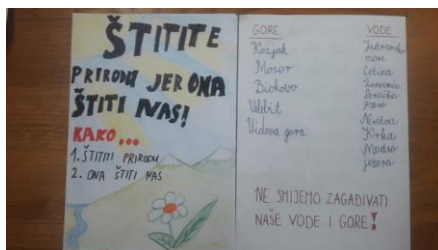 ŠTITITE
PRIRODU JER ONA
ŠTITI NAS!
KAKO...
1. ŠTITITI PRIRODU
2. ONA ŠTITI NAS
GORE
Kozjak
Mosor
Biokovo
Velebit
Vidova gora
VODE
Jadransko
more
Cetina
jezero
Neretva
Krka
Modro
jezero
NE SMIJEMO ZAGAĐIVATI
NAŠE VODE I GORE!